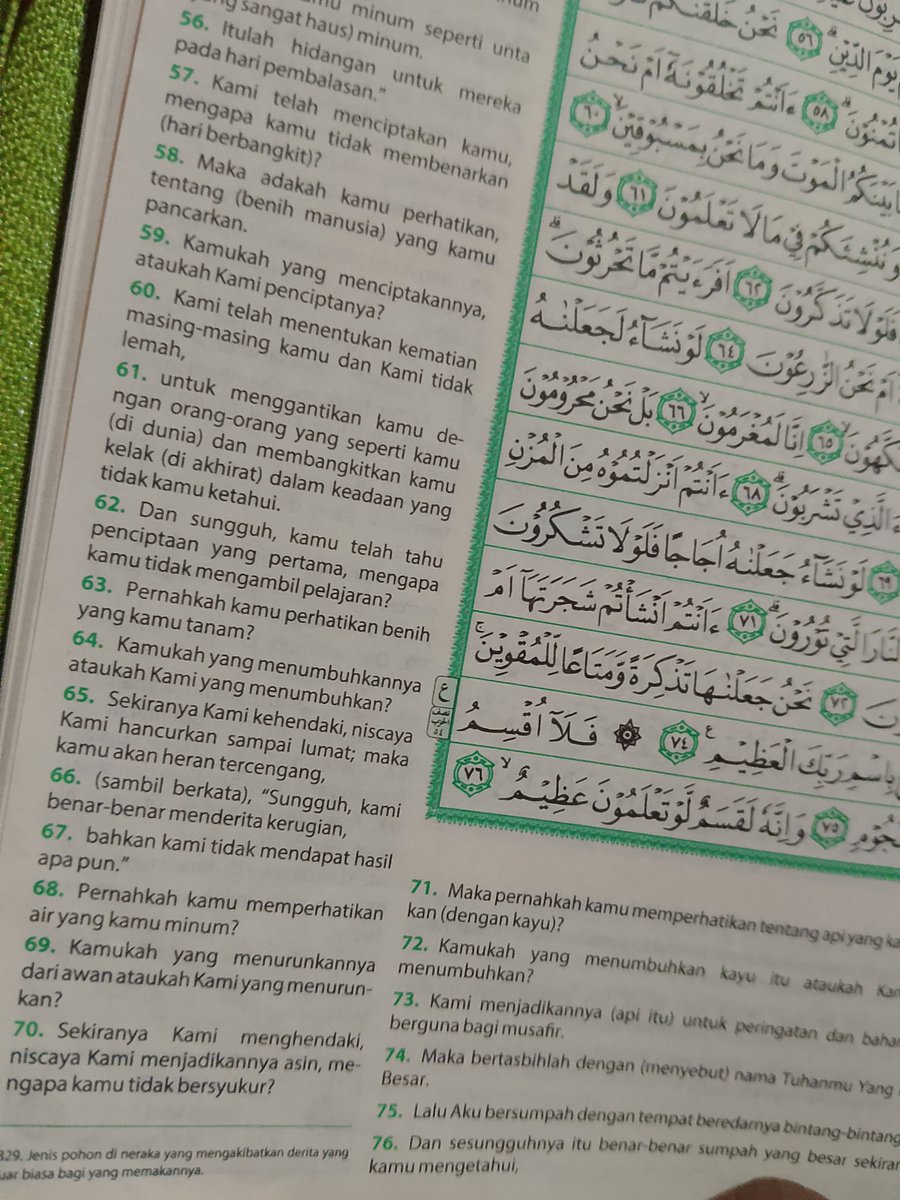 minum seperti unta
sangat haus) minum.
56. Itulah hidangan untuk mereka
pada hari pembalasan.”
57. Kami telah menciptakan kamu,
mengapa kamu tidak membenarkan
(hari berbangkit)?
58. Maka adakah kamu perhatikan,
tentang (benih manusia) yang kamu
pancarkan.
59. Kamukah yang menciptakannya,
ataukah Kami penciptanya?
60. Kami telah menentukan kematian
masing-masing kamu dan Kami tidak
lemah,
61. untuk menggantikan kamu de-
ngan orang-orang yang seperti kamu
(di dunia) dan membangkitkan kamu
kelak (di akhirat) dalam keadaan yang
tidak kamu ketahui.
62. Dan sungguh, kamu telah tahu
penciptaan yang pertama, mengapa
kamu tidak mengambil pelajaran?
63. Pernahkah kamu perhatikan benih
yang kamu tanam?
64. Kamukah yang menumbuhkannya
ataukah Kami yang menumbuhkan?
65. Sekiranya Kami kehendaki, niscaya
Kami hancurkan sampai lumat; maka
kamu akan heran tercengang,
66. (sambil berkata), “Sungguh, kami
benar-benar menderita kerugian,
67. bahkan kami tidak mendapat hasil
apa pun.”
68. Pernahkah kamu memperhatikan
air yang kamu minum?
69. Kamukah yang menurunkannya
dari awan ataukah Kami yang menurun-
kan?
70. Sekiranya Kami menghendaki,
niscaya Kami menjadikannya asin, me-
ngapa kamu tidak bersyukur?
829. Jenis pohon di neraka yang mengakibatkan derita yang
biasa bagi yang memakannya.
يَوْمَ الدِّيْنِۗ ٥٦ نَحْنُ خَلَقْنٰكُمْ
تُمْنُوْنَۗ ٥٨ ءَاَنْتُمْ تَخْلُقُوْنَهٗٓ اَمْ نَحْنُ
بَيْنَكُمُ الْمَوْتَ وَمَا نَحْنُ بِمَسْبُوْقِيْنَۙ ٦٠
وَنُنْشِئَكُمْ فِيْ مَا لَا تَعْلَمُوْنَ ٦١ وَلَقَدْ
فَلَوْلَا تَذَكَّرُوْنَ ٦٢ اَفَرَءَيْتُمْ مَّا تَحْرُثُوْنَۗ
اَمْ نَحْنُ الزّٰرِعُوْنَ ٦٤ لَوْ نَشَاۤءُ لَجَعَلْنٰهُ
٦٥ اِنَّا لَمُغْرَمُوْنَۙ ٦٦ بَلْ نَحْنُ مَحْرُوْمُوْنَ
الَّذِيْ تَشْرَبُوْنَۗ ٦٨ ءَاَنْتُمْ اَنْزَلْتُمُوْهُ مِنَ الْمُزْنِ
٦٩ لَوْ نَشَاۤءُ جَعَلْنٰهُ اُجَاجًا فَلَوْلَا تَشْكُرُوْنَ
النَّارَ الَّتِيْ تُوْرُوْنَۗ ٧١ ءَاَنْتُمْ اَنْشَأْتُمْ شَجَرَتَهَآ اَمْ
٧٢ نَحْنُ جَعَلْنٰهَا تَذْكِرَةً وَّمَتَاعًا لِّلْمُقْوِيْنَۚ
بِاسْمِ رَبِّكَ الْعَظِيْمِ ࣖ ٧٤ ۞ فَلَآ اُقْسِمُ
٧٥ وَاِنَّهٗ لَقَسَمٌ لَّوْ تَعْلَمُوْنَ عَظِيْمٌۙ ٧٦
ع
71. Maka pernahkah kamu memperhatikan tentang api yang
kan (dengan kayu)?
72. Kamukah yang menumbuhkan kayu itu ataukah
menumbuhkan?
73. Kami menjadikannya (api itu) untuk peringatan dan
berguna bagi musafir.
74. Maka bertasbihlah dengan (menyebut) nama Tuhanmu Yang
Besar.
75. Lalu Aku bersumpah dengan tempat beredarnya bintang-bintang
76. Dan sesungguhnya itu benar-benar sumpah yang besar
kamu mengetahui,